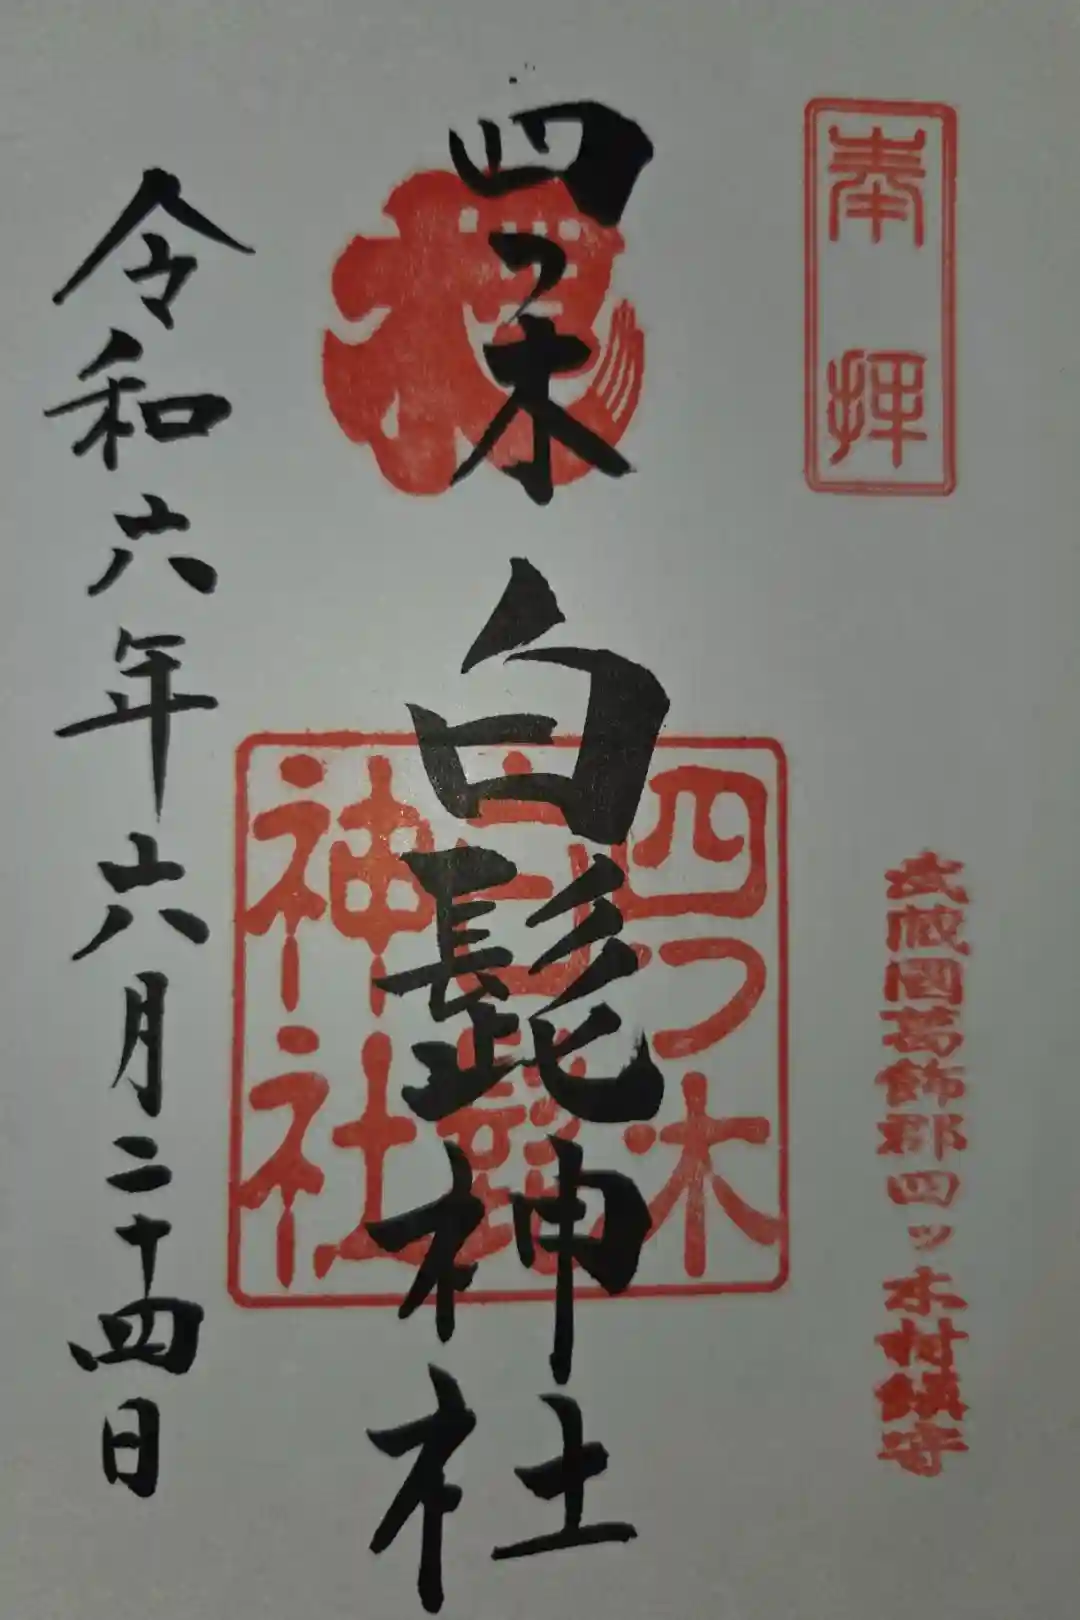 奉拝
武蔵國葛飾郡四ッ木村鎮守
四ツ木白髭神社
四つ木
白髭
神社
令和六年六月二十四日